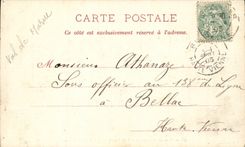 CARTE POSTALE
Ce côté est exclusivement réservé à l'adresse.
Val de Marne
Monsieur Athanaze
Sous officier au 138e de Ligne
à Bellac
Haute-Vienne